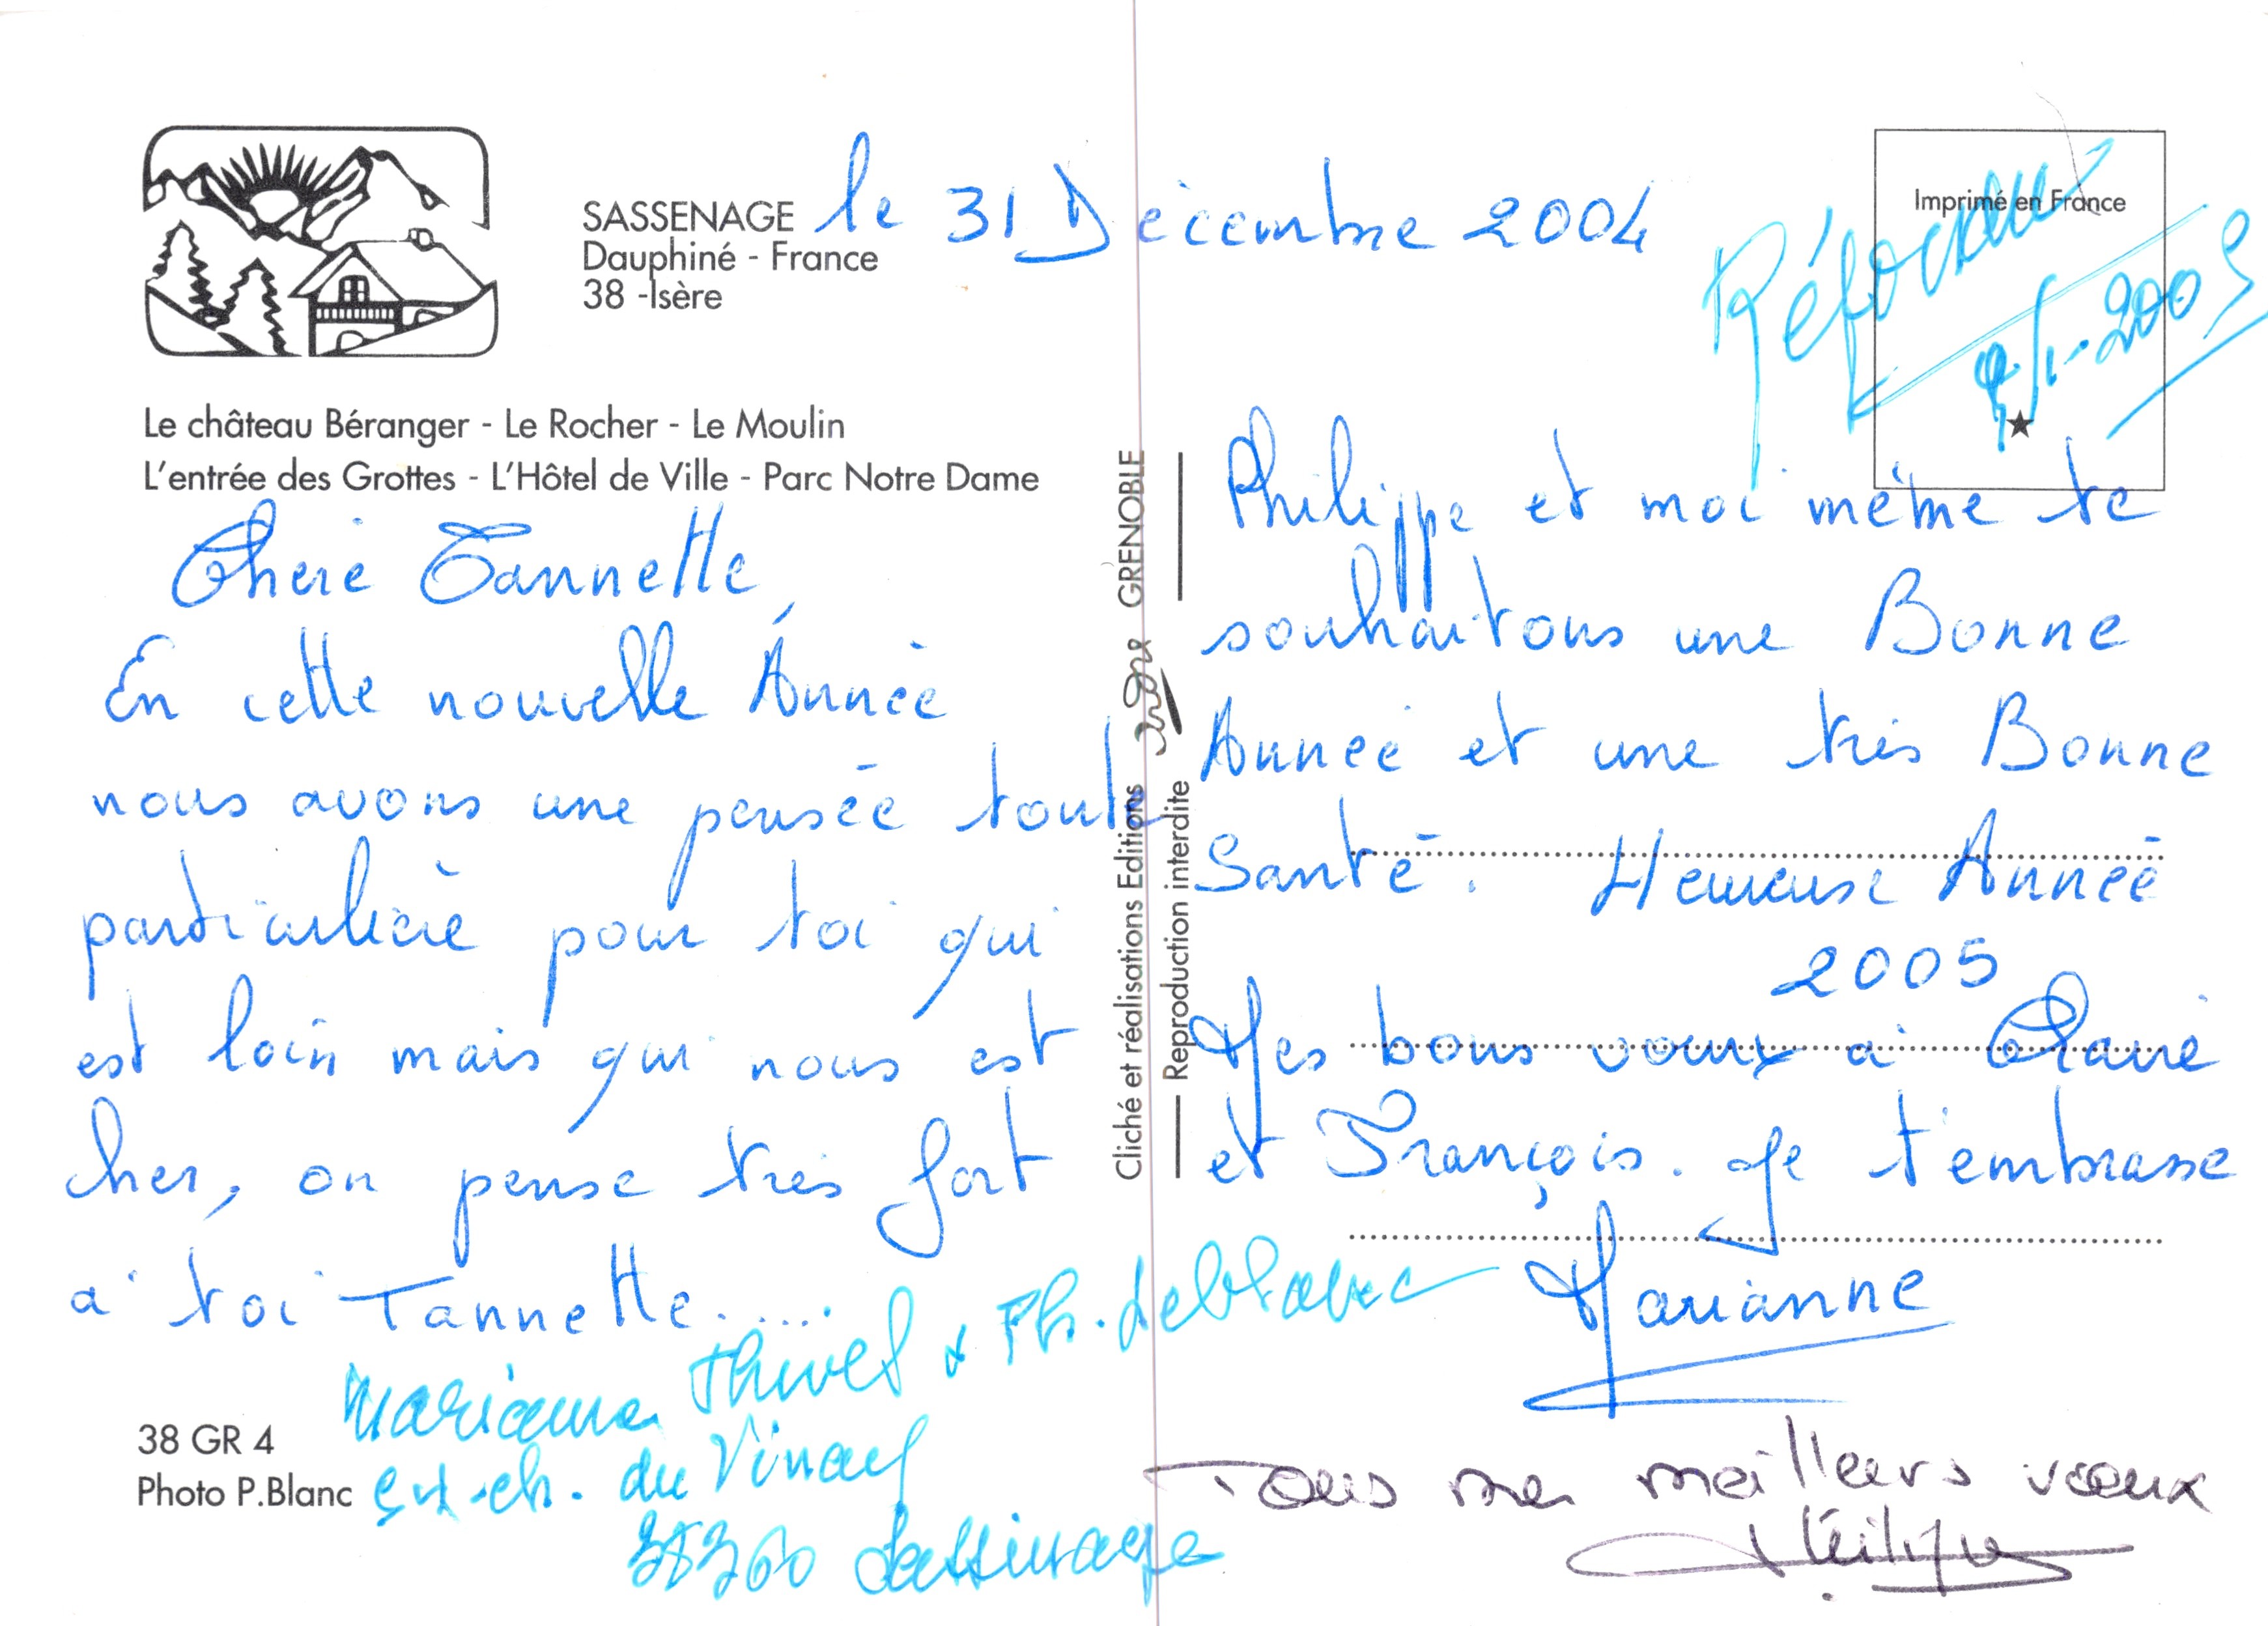 SASSENAGE le 31 Décembre 2004
Dauphiné - France
38 -Isère
Imprimé en France
2005
Le château Béranger - Le Rocher - Le Moulin
L'entrée des Grottes - L'Hôtel de Ville - Parc Notre Dame
Cherie Tannette,
En cette nouvelle Année
nous avons une pensée toute
particulière pour toi qui
est loin mais qui nous est
cher, on pense très fort
à toi Tannette.....
Marianne Thivel & Ph. Leblanc
ch. du Vinay
38360 Sassenage
38 GR 4
Photo P.Blanc
Cliché et réalisations Editions GRENOBLE
Reproduction interdite
Philippe et moi même te
souhaitons une Bonne
Année et une très Bonne
Santé. Heureuse Année
2005
Mes bons voeux a Claire
et François. Je t'embrasse
Marianne
Tous mes meilleurs voeux
Philippe